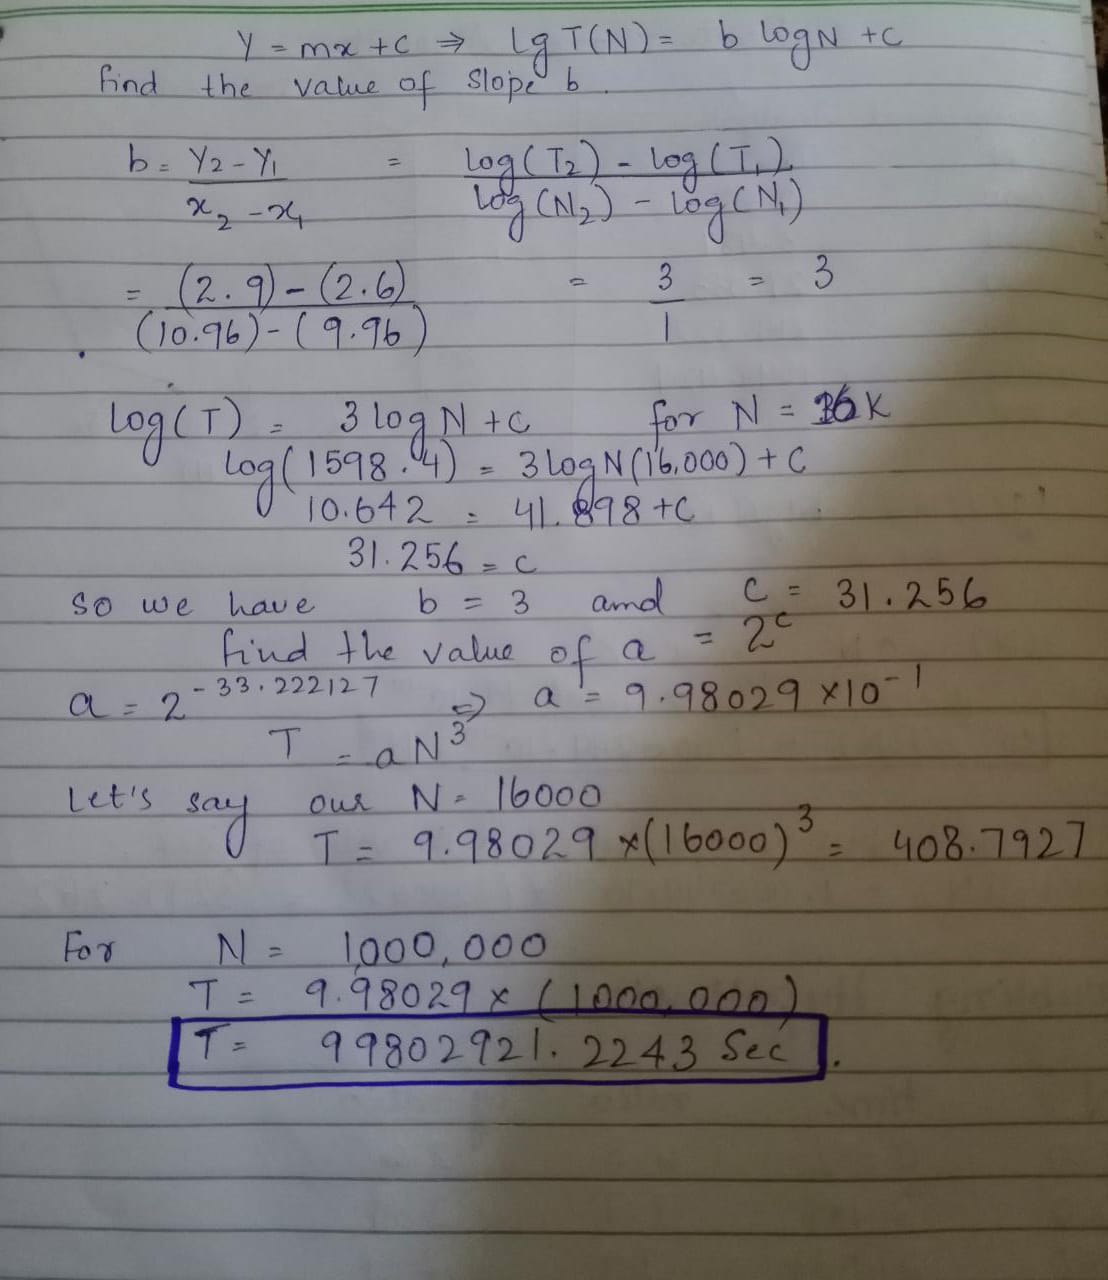 Y = mx + c ⇒ lg T(N) = b logN + c
find the value of slope b.
b = Y2 - Y1 / x2 - x1 = log(T2) - log(T1) / log(N2) - log(N1)
= (2.9) - (2.6) / (10.96) - (9.96) = 3 / 1 = 3
log(T) = 3 log N + c for N = 16K
log(1598.4) = 3 log N(16,000) + c
10.642 = 41.898 + c
31.256 = c
so we have b = 3 and c = 31.256
find the value of a = 2^c
a = 2^-33.222127 ⇒ a = 9.98029 x 10^-1
T = aN^3
Let's say our N = 16000
T = 9.98029 x (16000)^3 = 408.7927
For N = 1,000,000
T = 9.98029 x (1000,000)
T = 99802921.2243 Sec.